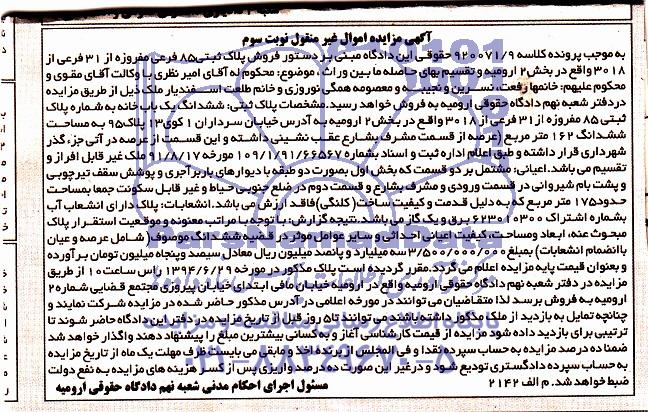 آگهی مزایده اموال غیر منقول نوبت سوم
به موجب پرونده کلاسه ۹۲۰۰۷۱/۹ حقوقی این دادگاه مبنی بر دستور فروش پلاک ثبتی ۸۵ فرعی مفروزه از ۳۱ فرعی از
۳۰۱۸ واقع در بخش ۲ ارومیه و تقسیم بهای حاصله ما بین وراث، موضوع: محکوم له آقای امیر نظری با وکالت آقای مقوی و
محکوم علیهم: خانمها رفعت، نسرین و نجیبه و معصومه همگی نوروزی و خانم طلعت اسفندیار ملک ذیل از طریق مزایده
در دفتر شعبه نهم دادگاه حقوقی ارومیه به فروش خواهد رسید. مشخصات پلاک ثبتی: ششدانگ یک باب خانه به شماره پلاک
ثبتی ۸۵ مفروزه از ۳۱ فرعی از ۳۰۱۸ واقع در بخش ۲ ارومیه به آدرس خیابان سرداران ۱ کوی ۱۳ پلاک ۹۵ به مساحت
ششدانگ ۱۶۲ متر مربع (عرصه از قسمت مشرف بشارع عقب نشینی داشته و این قسمت از عرصه در آتی جزء گذر
شهرداری قرار داشته و طبق اعلام اداره ثبت و اسناد بشماره ۱۰۹/۱/۹۱/۶۶۵۶۷ مورخه ۹۱/۸/۱۷ ملک غیر قابل افراز و
تقسیم می باشد. اعیانی: مشتمل بر دو قسمت که بخش اول بصورت دو طبقه با دیوارهای باربر آجری و پوشش سقف تیرچوبی
و پشت بام شیروانی در قسمت ورودی و مشرف بشارع و قسمت دوم در ضلع جنوبی حیاط و غیر قابل سکونت جمعا بمساحت
حدود ۱۷۵ متر مربع که به دلیل قدمت و کیفیت ساخت (کلنگی) فاقد ارزش می باشد. انشعابات: پلاک دارای انشعاب آب
بشماره اشتراک ۶۲۳۰۱۰۳۰۰ برق و یک گاز می باشد. نتیجه گزارش: با توجه با مراتب معنونه و موقعیت استقرار پلاک
مبحوث عنه، ابعاد ومساحت، کیفیت اعیانی احداثی و سایر عوامل موثر در قضیه ششدانگ موصوف (شامل عرصه و عیان
باانضمام انشعابات) بمبلغ ۳/۵۰۰/۰۰۰/۰۰۰ سه میلیارد و پانصد میلیون ریال معادل سیصد وپنجاه میلیون تومان برآورده
و بعنوان قیمت پایه مزایده اعلام می گردد. مقرر گردیده است پلاک مذکور در مورخه ۱۳۹۴/۶/۲۹ راس ساعت ۱۰ از طریق
مزایده در دفتر شعبه نهم دادگاه حقوقی ارومیه واقع در ارومیه خیابان مافی ابتدای خیابان پیروزی مجتمع قضایی شماره ۲
ارومیه به فروش برسد لذا متقاضیان می توانند در مورخه اعلامی در آدرس مذکور حاضر شده در مزایده شرکت نمایند و
چنانچه تمایل به بازدید از ملک مذکور داشته باشند می توانند تا ۵ روز قبل از تاریخ مزایده در دفتر این دادگاه حاضر شوند تا
ترتیبی برای بازدید داده شود مزایده از قیمت کارشناسی آغاز و به کسانی بیشترین مبلغ را پیشنهاد دهند واگذار خواهد شد
ضمنا ده درصد مزایده به حساب سپرده نقدا و فی المجلس از برنده اخذ و مابقی می بایست ظرف مهلت یک ماه از تاریخ مزایده
به حساب سپرده دادگستری تودیع شود و در غیر این صورت ده درصد واریزی پس از کسر هزینه های مزایده به نفع دولت
ضبط خواهد شد. م الف ۲۱۴۲
مسئول اجرای احکام مدنی شعبه نهم دادگاه حقوقی ارومیه